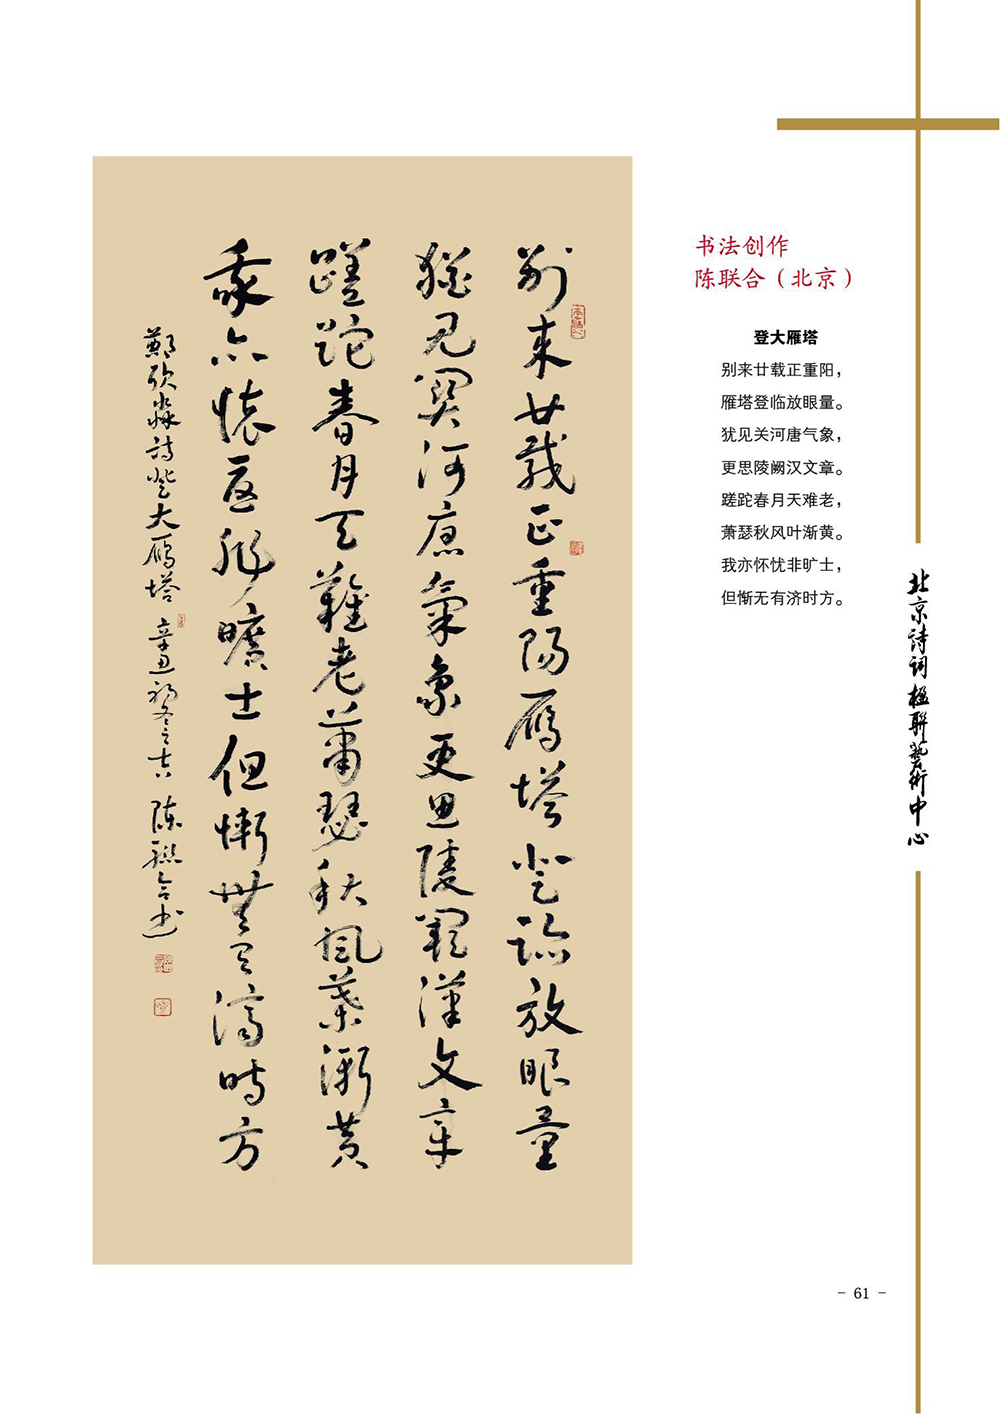 别来廿载正重阳雁塔登临放眼量
犹见関河唐氣象更思陵闕漢文章
蹉跎春月天難老蕭瑟秋風葉漸黄
我亦懷忧非曠士但慚無有濟時方
鄭欣淼詩登大雁塔 辛丑初冬之吉 陈聯合书
书法创作
陈联合（北京）
登大雁塔
别来廿载正重阳，
雁塔登临放眼量。
犹见关河唐气象，
更思陵阙汉文章。
蹉跎春月天难老，
萧瑟秋风叶渐黄。
我亦怀忧非旷士，
但惭无有济时方。
北京诗词楹聯藝術中心
- 61 -